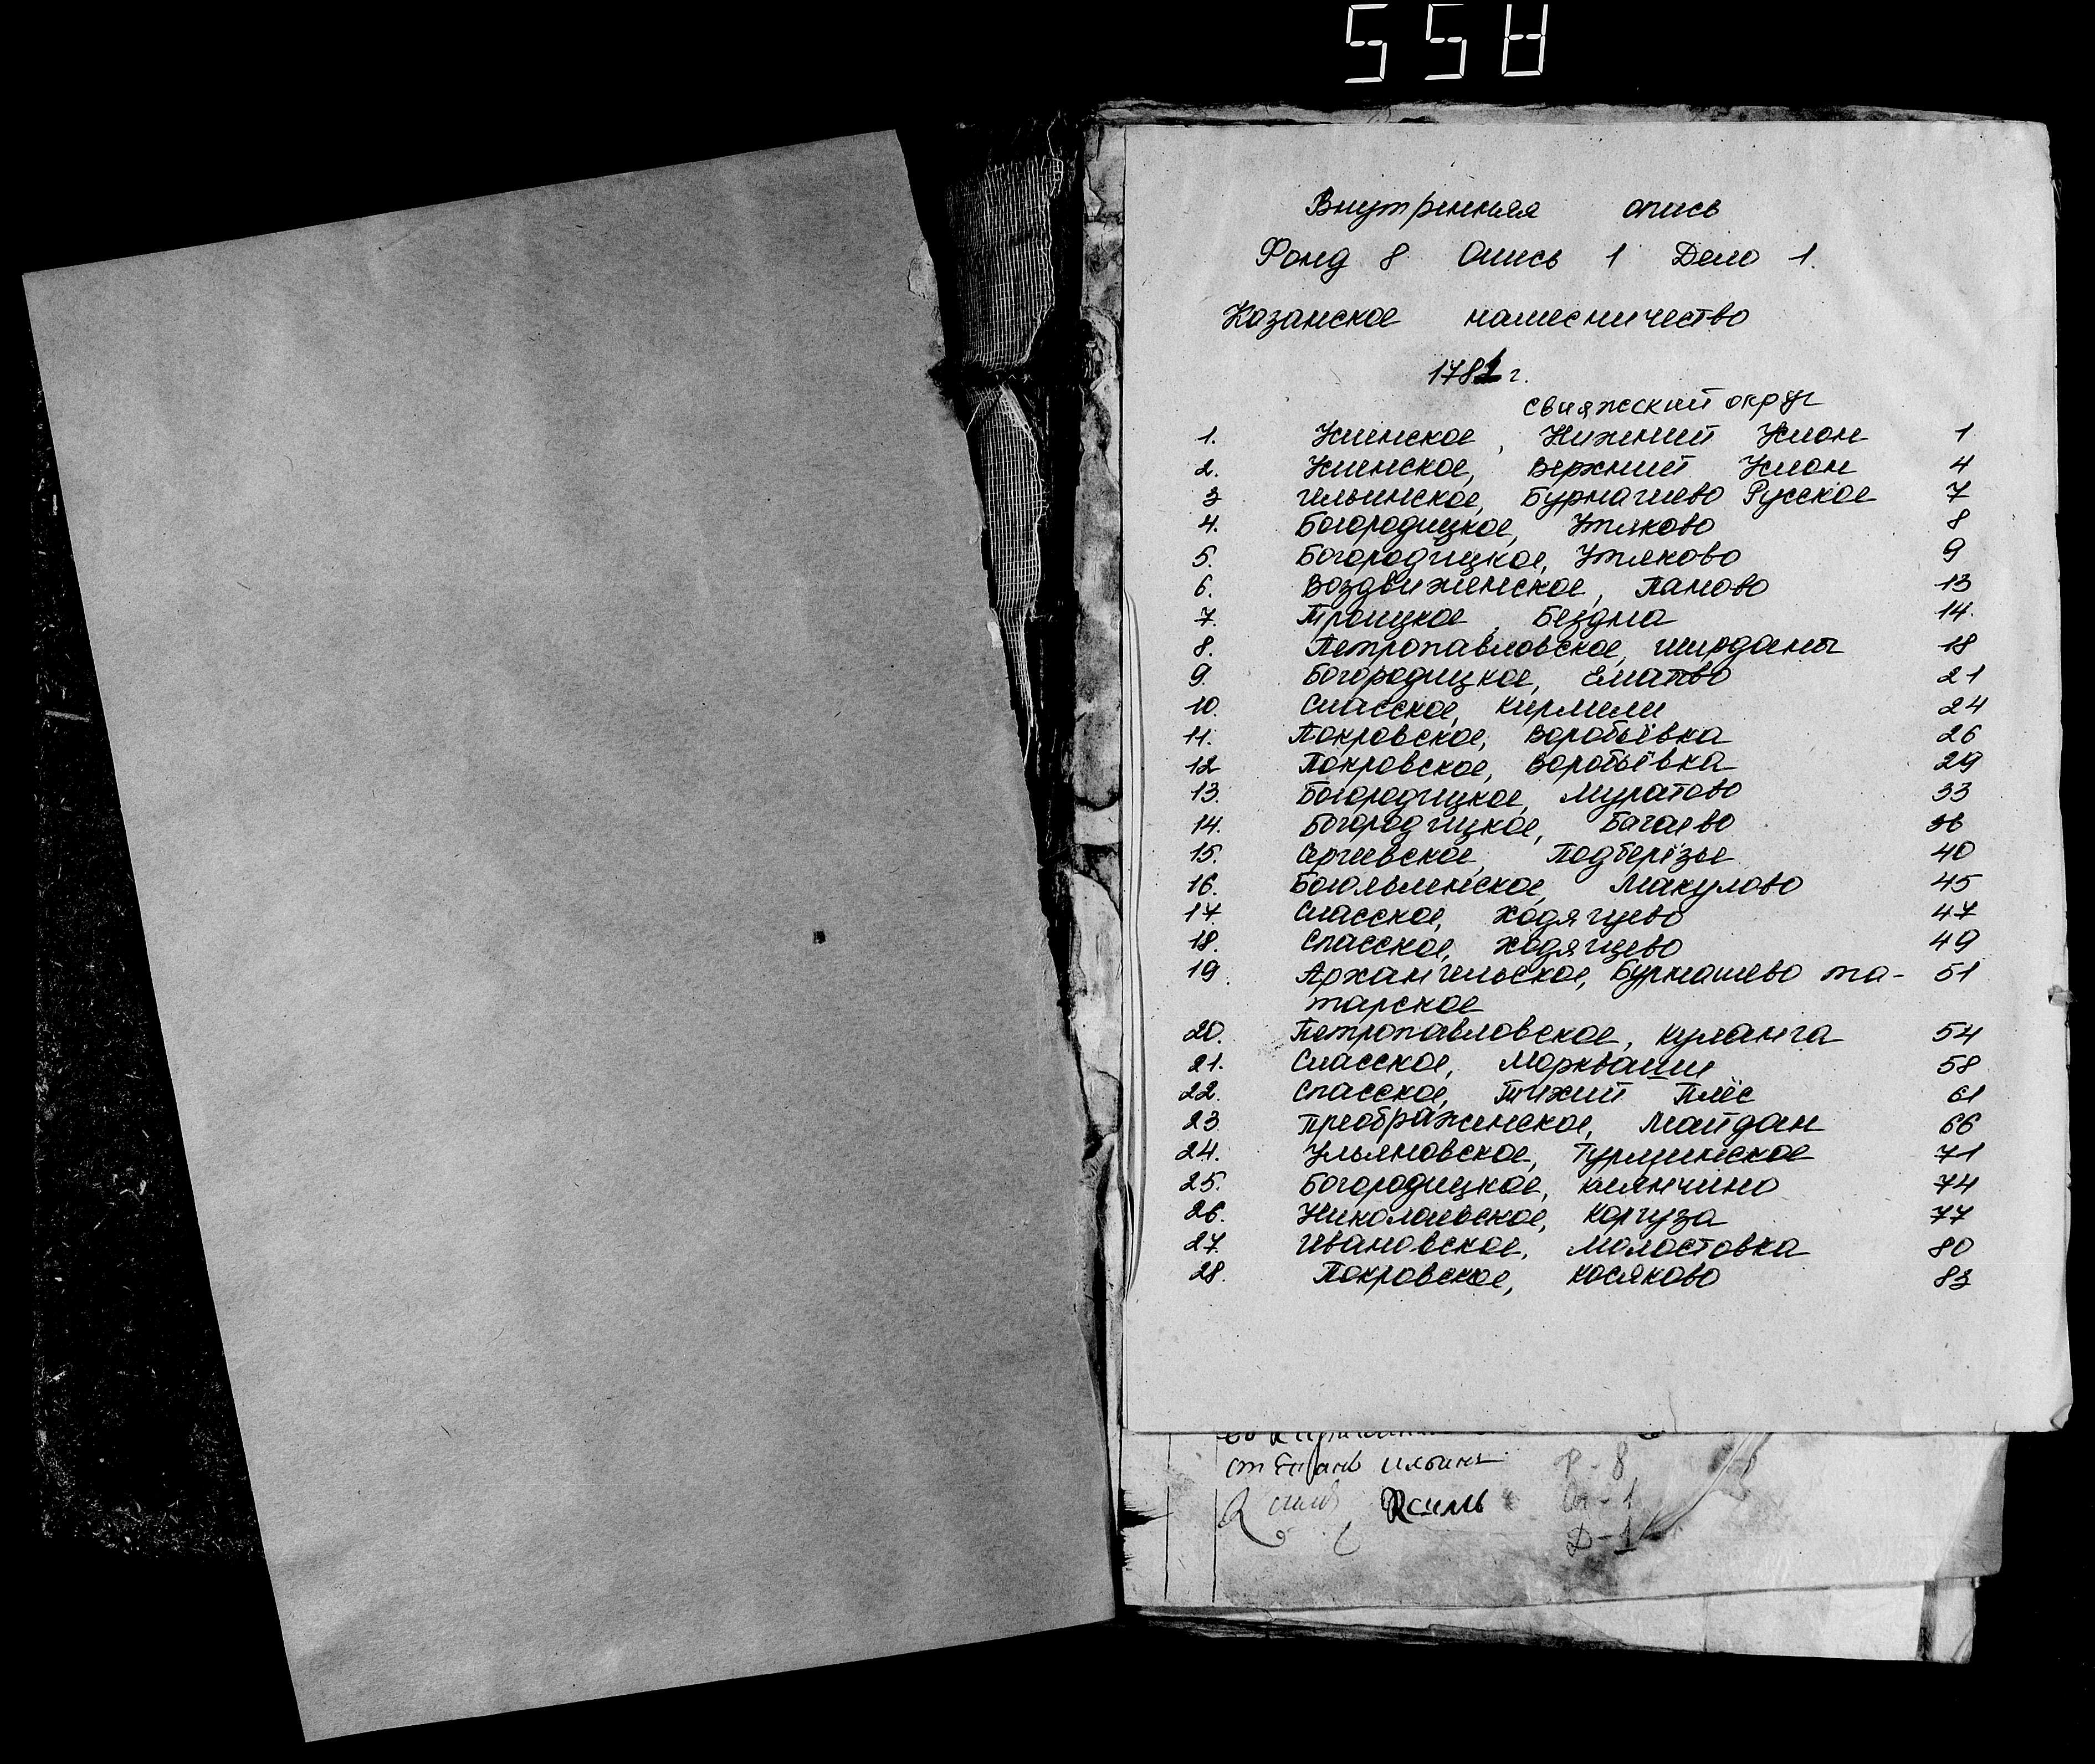 558
Внутренняя опись
Фонд 8 Опись 1 Дело 1.
Казанское намесничество
1781 г.
свияжский округ
1. Успенское, Нижний Услон 1
2. Успенское, Верхний Услон 4
3 Ильинское, Бурнашево Русское 7
4. Богородицкое, Утяково 8
5. Богородицкое, Утяково 9
6. Воздвиженское, Паново 13
7. Троицкое, Бездна 14.
8. Петропавловское, ширданы 18
9. Богородицкое, 21
10. Спасское, Кирмели 24
11. Покровское, Воробьёвка 26
12 Покровское, Воробьёвка 29
13. Богородицкое, Муратово 33
14. Богородицкое, Багаево 36
15. Сергиевское, Подберёзье 40
16. Богоявленское, Макулово 45
17. Спасское, Ходяшево 47
18. Спасское, Ходяшево 49
19. Архангельское, Бурнашево та- 51
тарское
20. Петропавловское, Куланга 54
21. Спасское, Моркваши 58
22. Спасское, Тихий Плёс 61
23 Преображенское, Майдан 66
24. Ульяновское, Турминское 71
25. Богородицкое, Киянчино 74
26. Николаевское, Коргуза 77
27. Ивановское, Молостовка 80
28. Покровское, Косяково 83
Ф - 8
Оп - 1
Д - 1